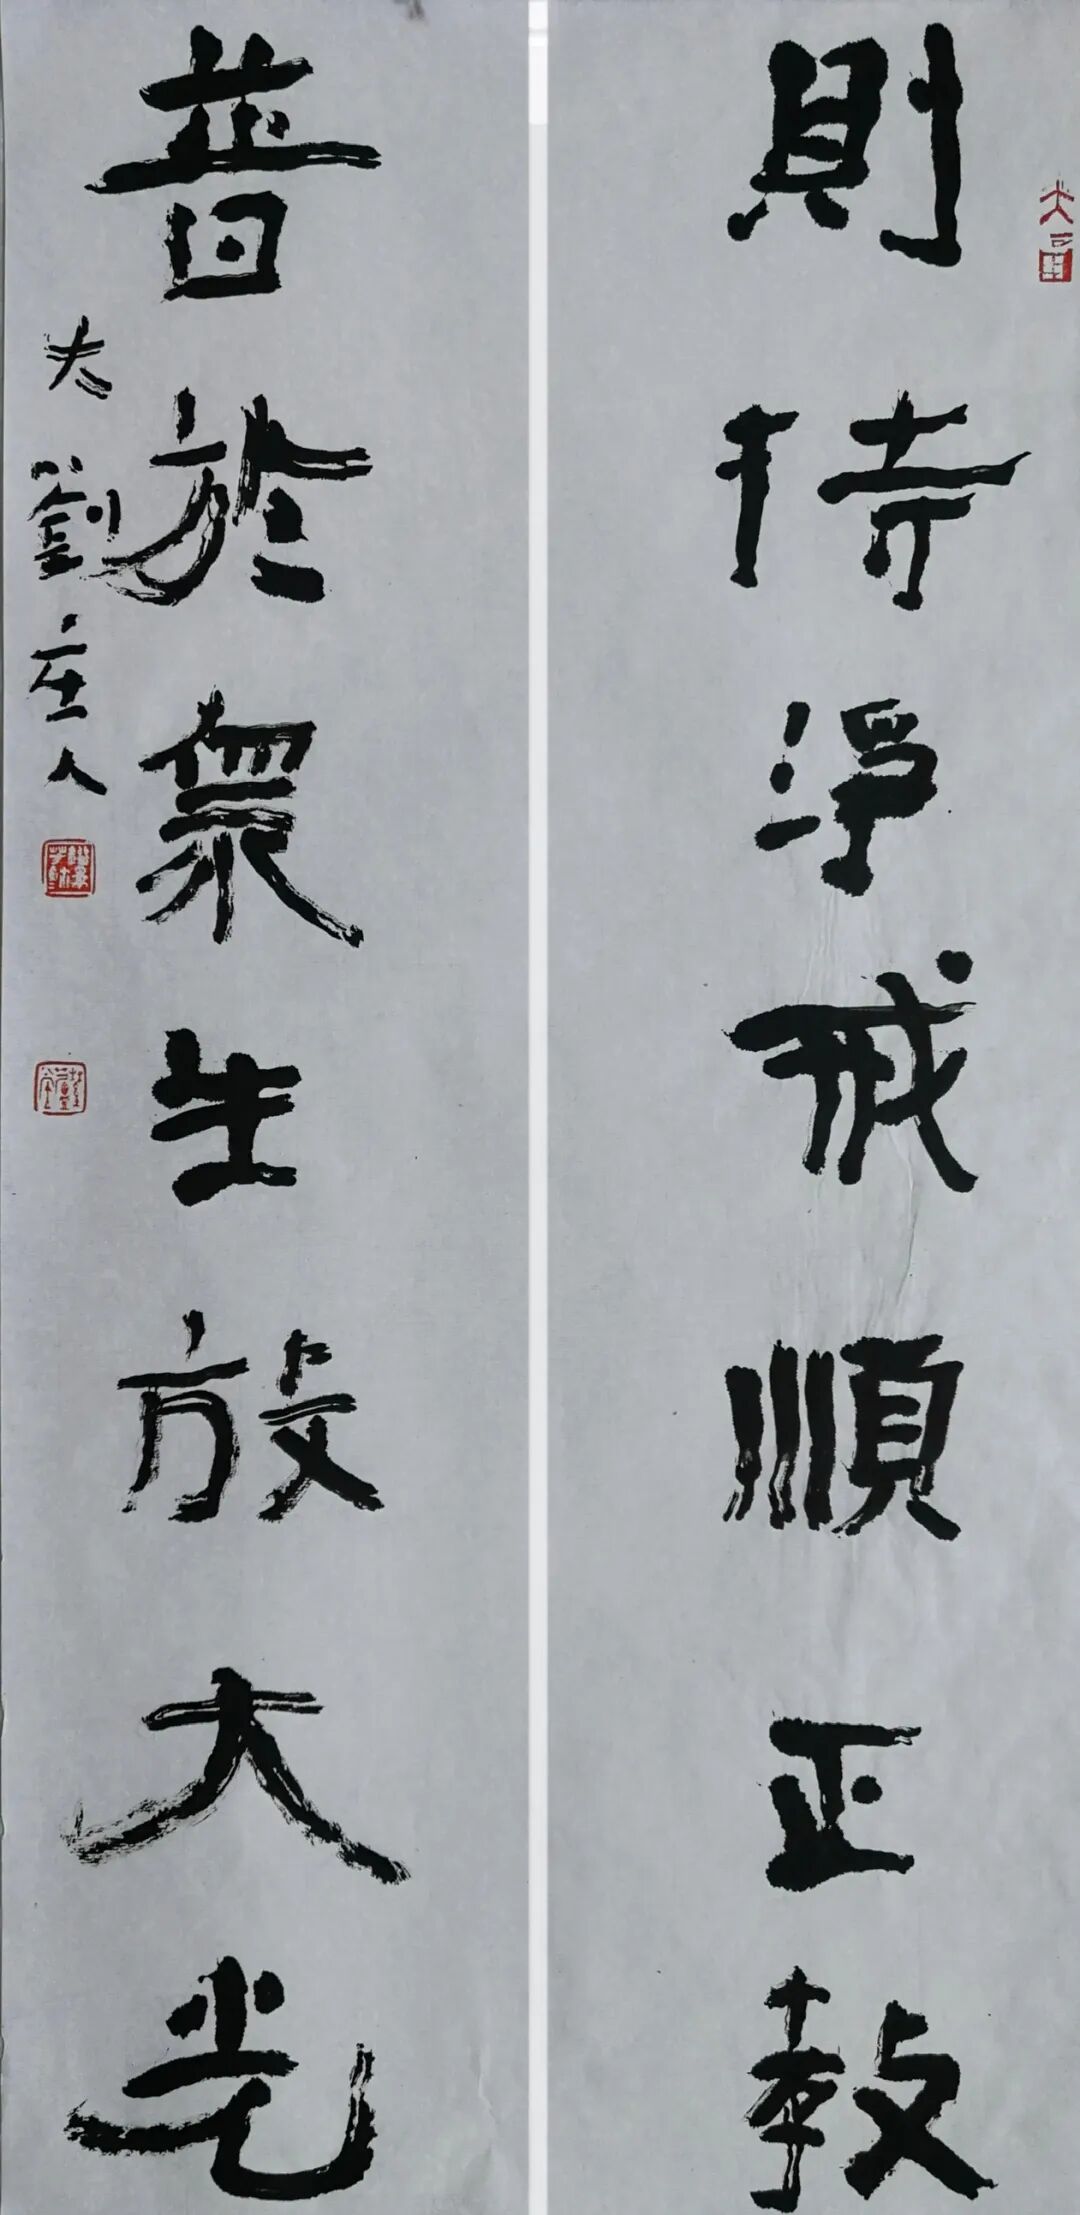 則持淨戒順正教
普於衆生放大光
大劉庄人